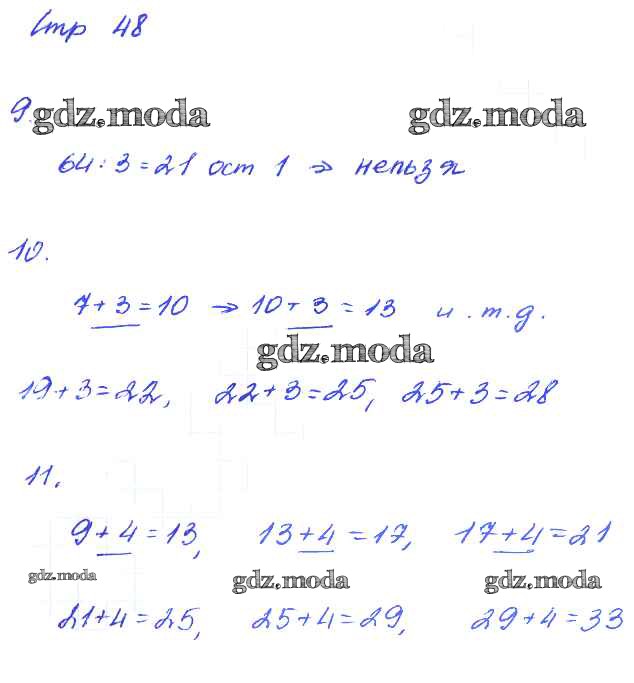 Стр 48
9.
gdz.moda gdz.moda
64 : 3 = 21 ост 1 => нельзя
10.
7 + 3 = 10 → 10 + 3 = 13 и.т.д.
gdz.moda
19 + 3 = 22, 22 + 3 = 25, 25 + 3 = 28
11.
9 + 4 = 13, 13 + 4 = 17, 17 + 4 = 21
gdz.moda gdz.moda gdz.moda
21 + 4 = 25, 25 + 4 = 29, 29 + 4 = 33